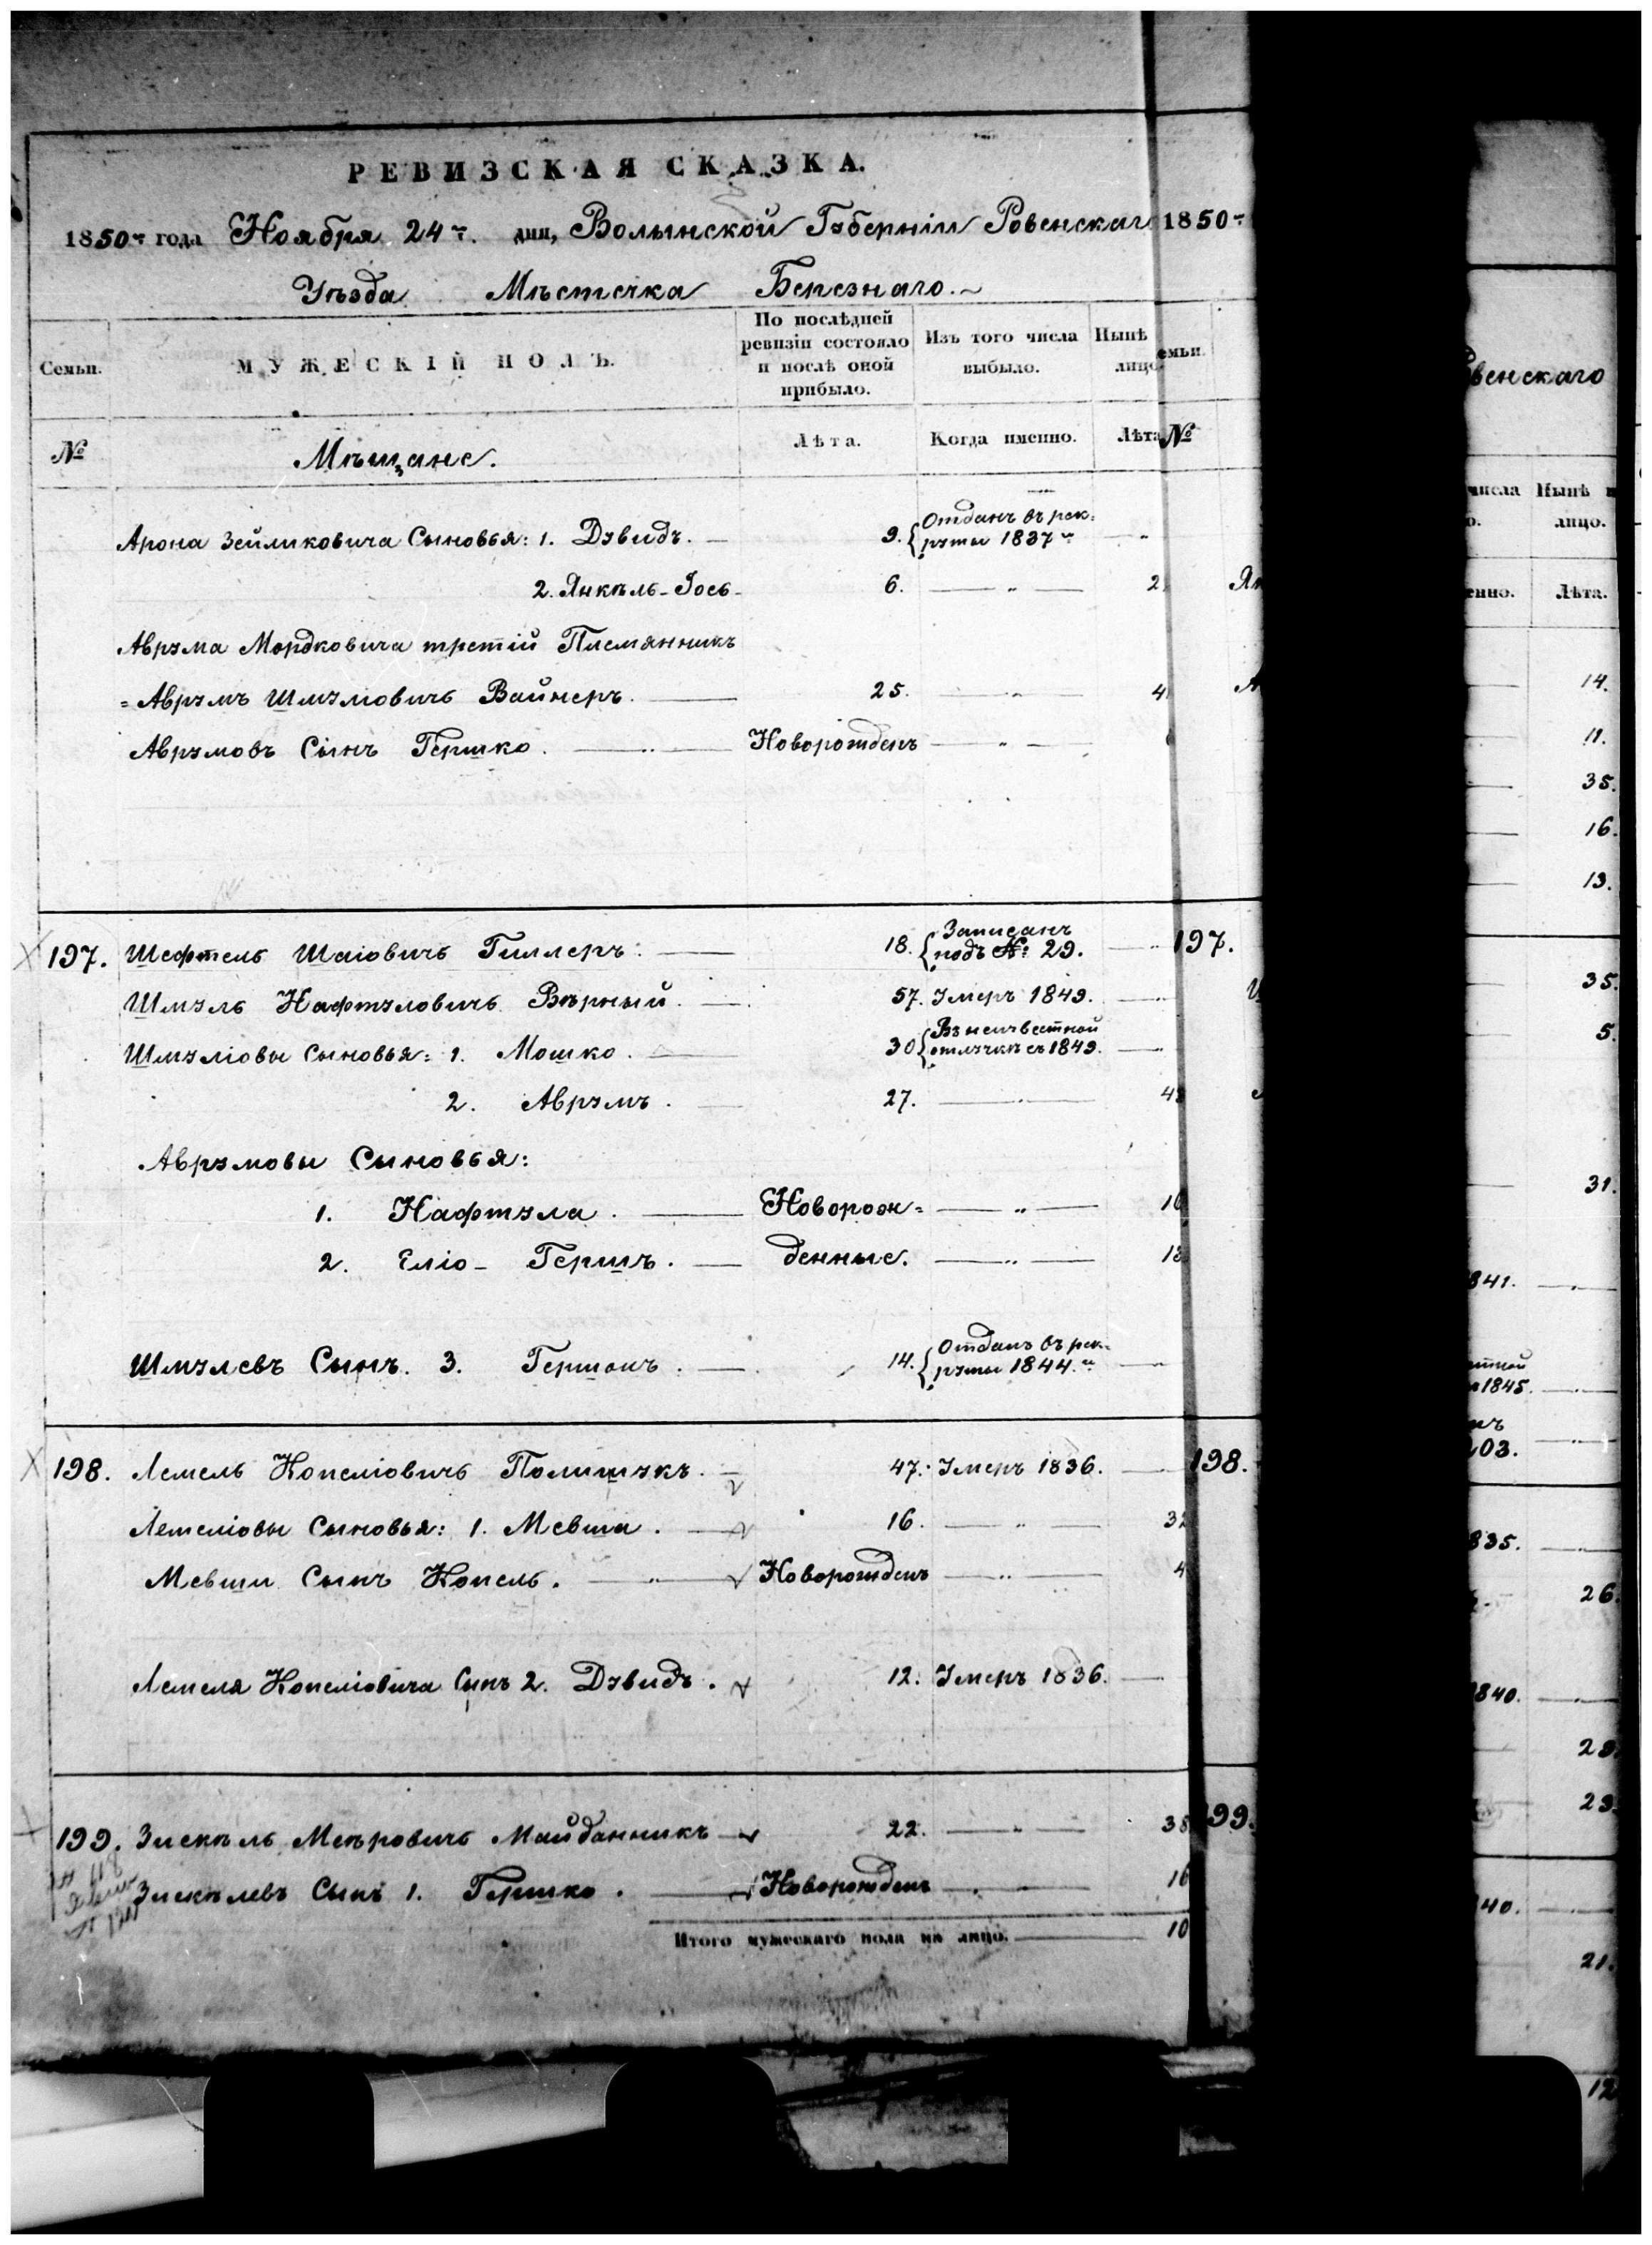 РЕВИЗСКАЯ СКАЗКА.
1850 года Ноября 24 дня, Волынской Губерніи Ровенскаг 1850
Уѣзда Мѣстечка Березнаго.
Семьи. МУЖЕСКІЙ ПОЛЪ. По послѣдней ревизіи состояло и послѣ оной прибыло. Изъ того числа выбыло. Нынѣ лицо емьи.
№ Мѣщане. Лѣта. Когда именно. Лѣта №
Арона Зейликовича Сыновья: 1. Дувидъ. 9. Отданъ въ рек:
руты 1837
2. Янкѣль-Іось 6. — " — 2
Аврума Мордковича третій Племянникъ
= Аврумъ Шмуліовичъ Вайнеръ. 25. — " — 4
Аврумовъ Сынъ Гершко. — " — Новорожденъ — " —
197. Шефтель Шаіовичъ Гиллеръ. 18. Записанъ
подъ №: 29. 197.
Шмуль Нафтуловичъ Вѣрный. 57. Умеръ 1849.
Шмуліовы Сыновья: 1. Мошко. 30 Въ неизвестной
отлучкѣ съ 1849.
2. Аврумъ. 27. — " — 4
Аврумовы Сыновья:
1. Нафтула. Новорож= — " — 16
2. Еліо-Гершъ. денные. — " — 13
Шмулевъ Сынъ. 3. Гершонъ. 14. Отданъ въ рек:
руты 1844.
198. Лемель Копеліовичъ Полищукъ. 47. Умеръ 1836. 198.
Лемеліовы Сыновья: 1. Мевша. 16. — " — 32
Мевши Сынъ Копель. — " — Новорожденъ — " — 4
Лемеля Копеліовича Сынъ 2. Дувидъ. 12. Умеръ 1836.
199. Зискѣль Меѣровичъ Майданникъ 22. — " — 38 199.
Зискѣлевъ Сынъ 1. Гершко. Новорожденъ — " — 16
Итого мужескаго пола на лицо. 10
венскаго
числа Нынѣ н
о. лицо.
енно. Лѣта.
14.
11.
35.
16.
13.
35.
5.
31.
841.
тной
1845.
нъ
203.
835.
26.
1840.
29.
29.
40.
21.
12